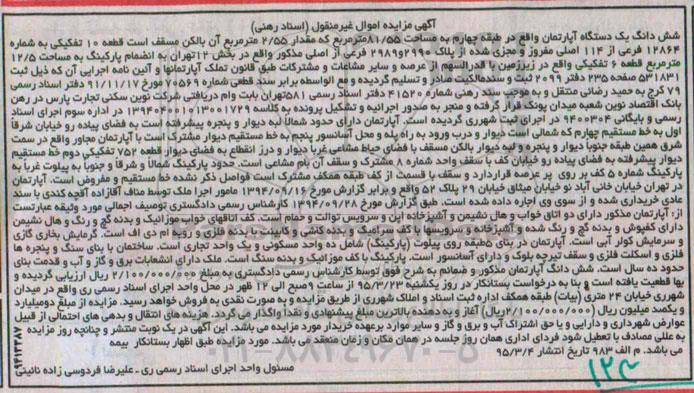 آگهی مزایده اموال غیرمنقول (اسناد رهنی)
شش دانگ یک دستگاه آپارتمان واقع در طبقه چهارم به مساحت ۸۱/۵۵مترمربع که مقدار ۲/۵۵ مترمربع آن بالکن مسقف است قطعه ۱۰ تفکیکی به شماره
۱۲۸۶۴ فرعی از ۱۱۴ اصلی مفروز و مجزی شده از پلاک ۲۹۹۰و۲۹۸۹ فرعی از اصلی مذکور واقع در بخش ۱۲تهران به انضمام پارکینگ به مساحت ۱۲/۵
مترمربع قطعه ۶ تفکیکی واقع در زیرزمین با قدرالسهم از عرصه و سایر مشاعات و مشترکات طبق قانون تملک آپارتمانها و آئین نامه اجرایی آن که ذیل ثبت
۵۳۱۸۳۱ صفحه ۲۳۵ دفتر ۲۰۹۹ ثبت و سندمالکیت صادر و تسلیم گردیده و مع الواسطه برابر سند قطعی شماره ۷۰۵۶۹ مورخ ۹۱/۱۱/۱۷ دفتر اسناد رسمی
۷۹ کرج به حمید رضائی منتقل و به موجب سند رهنی شماره ۴۱۵۲۰ دفتر اسناد رسمی ۵۸۱تهران بابت وام دریافتی شرکت نوین سکنی تجارت پارس در رهن
بانک اقتصاد نوین شعبه میدان پونک قرار گرفته و منجر به صدور اجرائیه و تشکیل پرونده به کلاسه در اداره سوم اجرای اسناد
رسمی و بایگانی ۹۴۰۰۳۰۴ در اجرای ثبت شهرری گردیده است. آپارتمان دارای حدود شمالا لبه دیوار و پنجره پیشرفته است به فضای پیاده رو خیابان شرقا
اول به خط مستقیم چهارم که شمالی است دیوار و درب ورود به راه پله و محل آسانسور پنجم به خط مستقیم دیوار مشترک است با آپارتمان مجاور واقع در سمت
شرق همین طبقه جنوبا دیوار و پنجره و لبه دیوار بالکن مسقف با فضای حیاط مشاعی غربا دیوار و درز انقطاع به فضای دیوار قطعه ۷۵۲ تفکیکی دوم خط مستقیم
دیوار پیشرفته به فضای پیاده رو خیابان کف با سقف واحد شماره ۸ مشترک و سقف آن بام مشاعی است. حدود پارکینگ شمالاً و شرقاً و جنوبا به پیلوت غربا به
پارکینگ شماره ۵ کف بر روی بر عرصه قراردارد و سقف با قسمت از کف طبقه همکف مشترک است فواصل ذکر نشده خط مستقیم و مفروض است. آپارتمان
در تهران خیابان خانی آباد نو خیابان میثاق خیابان ۲۹ پلاک ۵۲ واقع و برابر گزارش مورخ ۱۳۹۴/۰۹/۱۶ مامور اجرا ملک توسط مناف آقازاده آقجه کندی با سند
عادی خریداری شده و از سوی وی اجاره داده شده است. طبق گزارش مورخ ۱۳۹۴/۰۹/۲۸ کارشناس رسمی دادگستری توصیف اجمالی مورد وثیقه عبارتست
از: آپارتمان مذکور دارای دو اتاق خواب و هال نشیمن و آشپزخانه اپن و سرویس توالت و حمام است. کف اتاقهای خواب موزائیک و بدنه گچ و رنگ و هال نشیمن
دارای کفپوش و بدنه گچ و رنگ شده و آشپزخانه و سرویسها با کف سرامیک و بدنه کاشی و کابینت با بدنه فلزی و رویه ام دی اف است. گرمایش بخاری گازی
و سرمایش کولر آبی است. آپارتمان در بنای ۵طبقه روی پیلوت (پارکینگ) شامل ده واحد مسکونی و یک واحد تجاری است. ساختمان با بنای سنگ و پنجره ها
فلزی و اسکلت فلزی و سقف تیرچه بلوک و دارای آسانسور است. پارکینگ با کف موزائیک و بدنه سنگ است. ملک دارای انشعابات برق و گاز و آب و قدمت بنای
حدود ده سال است. شش دانگ آپارتمان مذکور و ضمائم به شرح فوق توسط کارشناس رسمی دادگستری به مبلغ ۲/۱۰۰/۰۰۰/۰۰۰ ریال ارزیابی گردیده و
بها قطعیت یافته است و بنا به درخواست بستانکار در روز یکشنبه ۹۵/۳/۲۳ از ساعت ۹صبح الی ۱۲ ظهر در محل واحد اجرای اسناد رسمی ری واقع در میدان
شهرری خیابان ۲۴ متری (بیات) طبقه همکف اداره ثبت اسناد و املاک شهرری از طریق مزایده و به صورت نقدی به فروش خواهد رسید. مزایده از مبلغ دومیلیارد
و یکصد میلیون ریال (۲/۱۰۰/۰۰۰/۰۰۰ریال) آغاز و به دهنده بالاترین مبلغ پیشنهادی و نقدا واگذار می گردد. هزینه های انتقال و بدهی های احتمالی از قبیل
عوارض شهرداری و دارایی و یا حق اشتراک آب و برق و گاز و سایر موارد برعهده خریدار مورد مزایده می باشد. این آگهی در یک نوبت منتشر و چنانچه روز مزایده
به عللی مصادف با تعطیل شود فردای اداری همان روز جلسه در همان مکان و زمان منعقد می باشد. مورد مزایده طبق اظهار بستانکار بیمه
می باشد. م الف ۹۸۳ تاریخ انتشار ۹۵/۳/۴
مسئول واحد اجرای اسناد رسمی ری - علیرضا فردوسی زاده نائینی